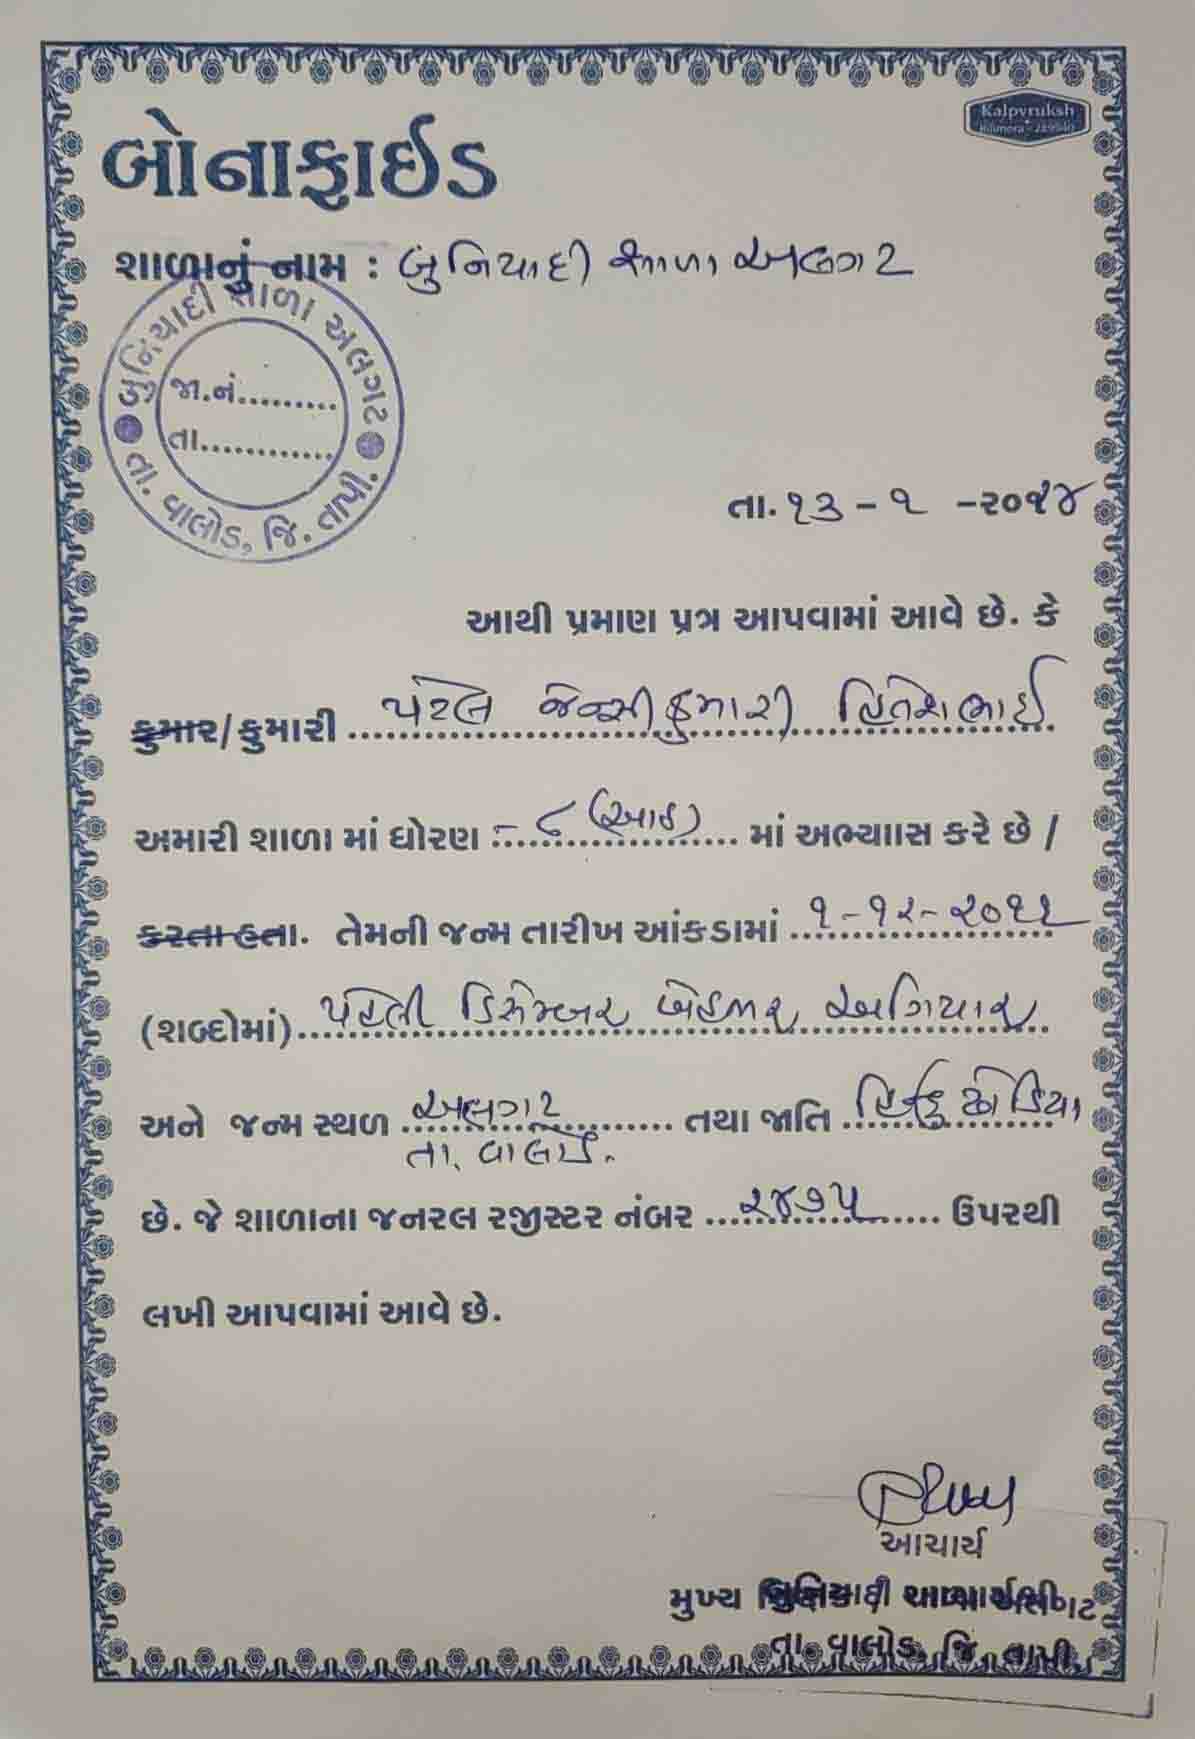 Kalpvruksh
Bilimora -
બોનાફાઈડ
શાળાનું નામ : બુનિયાદી શાળા અલગટ
બુનિયાદી શાળા અલગટ
જા.નં..........
તા............
તા. વાલોડ, જિ. તાપી.
તા. ૧૩ - ૧ - ૨૦૨૪
આથી પ્રમાણ પત્ર આપવામાં આવે છે. કે
કુમાર/કુમારી પટેલ જેન્સીકુમારી હિતેશભાઈ
અમારી શાળા માં ધોરણ - ૮ (આઠ) માં અભ્યાસ કરે છે /
કરતા હતા. તેમની જન્મ તારીખ આંકડામાં ૧-૧૨-૨૦૧૧
(શબ્દોમાં) પહેલી ડિસેમ્બર બેહજાર અગિયાર
અને જન્મ સ્થળ અલગટ તથા જાતિ હિન્દુ ધોડિયા
તા. વાલોડ.
છે. જે શાળાના જનરલ રજીસ્ટર નંબર ૨૪૭૫ ઉપરથી
લખી આપવામાં આવે છે.
આચાર્ય
મુખ્ય
બુનિયાદી શાળા અલગટ
તા. વાલોડ, જિ. તાપી.